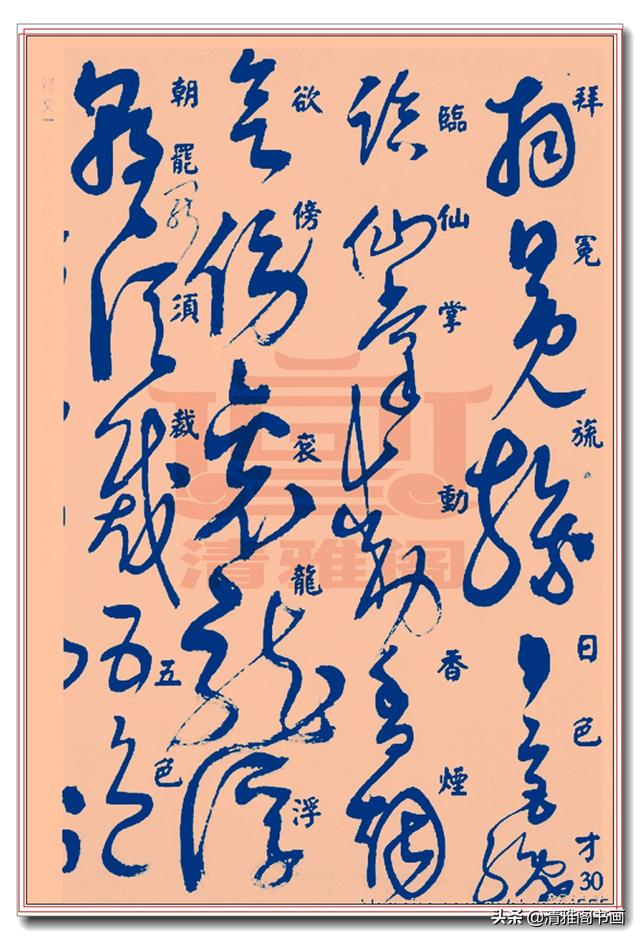 拜冕旒日色才
30
臨仙掌動香煙
欲傍衮龍浮
朝罷須裁五色
清雅阁
头条 @清雅阁书画